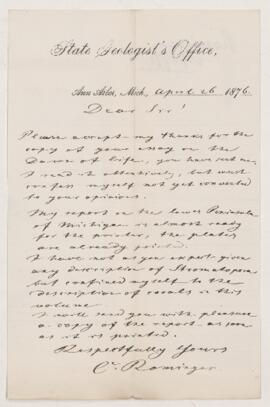 State Geologist's Office,
Ann Arbor, Mich., April 26 1876
Dear Sir!
Please accept my thanks for the
copy of your essay on the
Dawn of life, you have sent me,
I read it attentively, but must
confess myself not yet converted
to your opinions.
My report on the lower Peninsula
of Michigan is almost ready
for the printer, the plates
are already printed.
I have not as you expect given
any description of Stromatopora
but confined myself to the
description of corals in this
volume
I will send you with pleasure
a copy of the report as soon
as it is printed.
Respectfully Yours
C. Rominger.